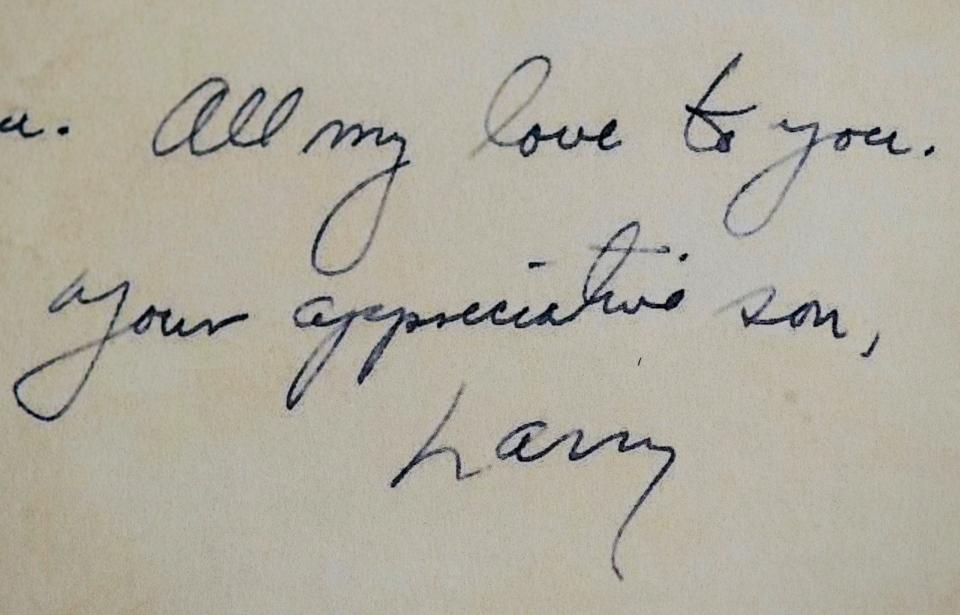 a. All my love to you.
your appreciative son,
Larry